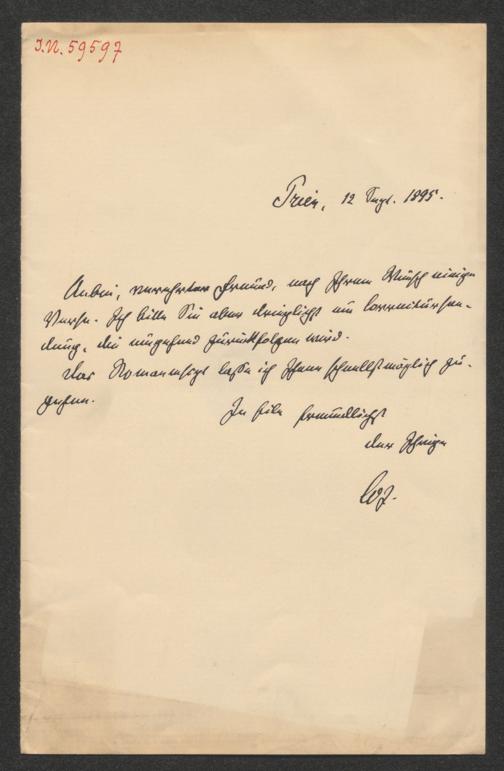 I.N. 59597
Trier, 12 Sept. 1895.
Anbei, verehrter Freund, nach Ihrem Wunsch einige
Verse. Ich bitte Sie aber dringlichst um Correctursen-
dung, die umgehend zurückfolgen wird.
Das Romanmscpt lasse ich Ihnen schnellstmöglich zu-
gehen.
In Eile freundlichst
der Ihrige